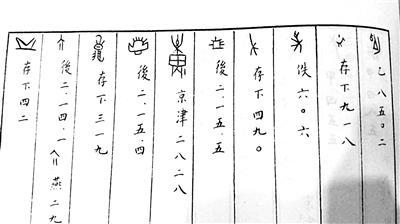 乙八五〇二
存下九一八
佚六〇六
存下四九〇
後二.一五.五
京津二八二八
後二.一五.四
存下三一九
後二.一四.一 燕二九
存下四二